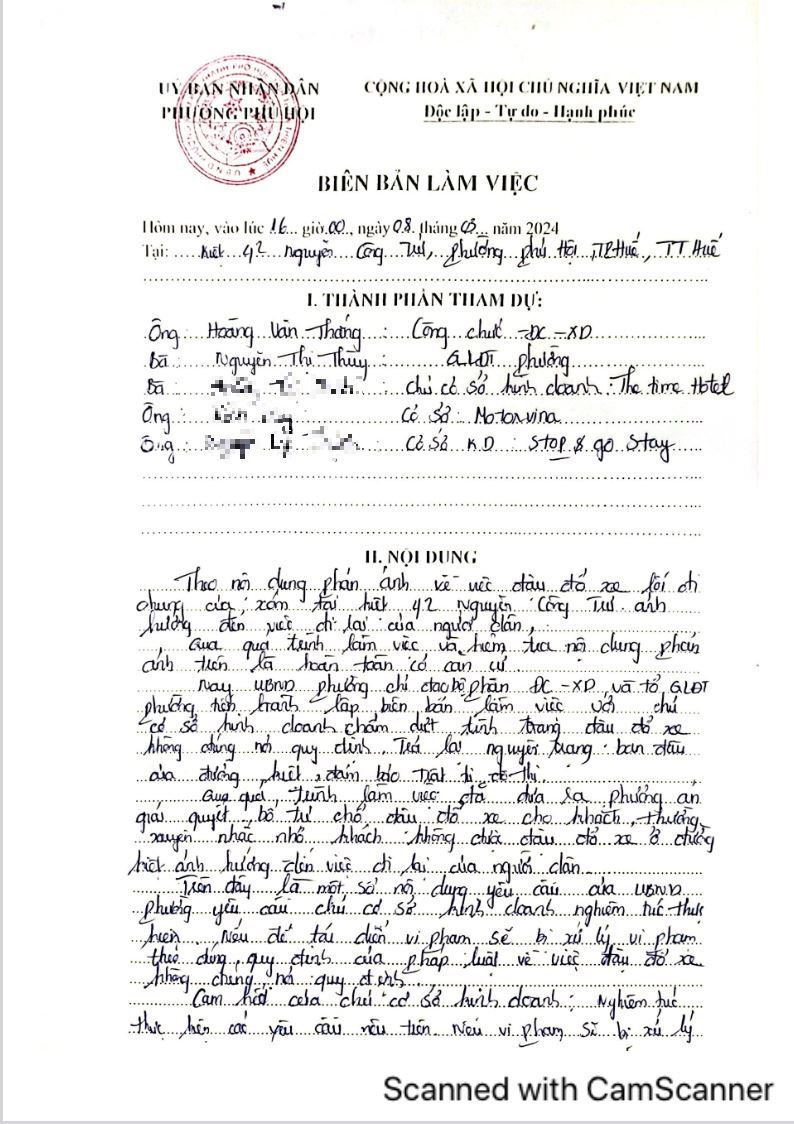 UỶ BAN NHÂN DÂN
PHƯỜNG PHÚ HỘI
CỘNG HOÀ XÃ HỘI CHỦ NGHĨA VIỆT NAM
Độc lập - Tự do - Hạnh phúc
BIÊN BẢN LÀM VIỆC
Hôm nay, vào lúc 16 giờ 00, ngày 08 tháng 03 năm 2024
Tại: Kiệt 42 Nguyễn Công Trứ, phường phú Hội, TP Huế, TT Huế
I. THÀNH PHẦN THAM DỰ:
Ông Hoàng Văn Thắng : Công chức ĐC - XD
Bà : Nguyễn Thị Thùy : QLĐT phường
Bà : chủ cơ sở kinh doanh : The time Hotel
Ông : Cơ sở : Motorvina
Ông : Cơ sở KD : Stop & go Stay
II. NỘI DUNG
Theo nội dung phản ánh về việc đậu đỗ xe lối đi
chung của xóm tại kiệt 42 Nguyễn Công Trứ ảnh
hưởng đến việc đi lại của người dân,
Qua quá trình làm việc và kiểm tra nội dung phản
ánh trên là hoàn toàn có căn cứ.
Nay UBND phường chỉ đạo bộ phận ĐC - XD và tổ QLĐT
phường tiến hành lập biên bản làm việc với chủ
cơ sở kinh doanh chấm dứt tình trạng đậu đỗ xe
không đúng nơi quy định. Trả lại nguyên trạng ban đầu
của đường kiệt, đảm bảo trật tự đô thị.
Qua quá trình làm việc đã đưa ra phương án
giải quyết, bố trí chỗ đậu đỗ xe cho khách, thường
xuyên nhắc nhở khách không được đậu đỗ xe ở đường
kiệt ảnh hưởng đến việc đi lại của người dân.
Trên đây là một số nội dung yêu cầu của UBND
phường yêu cầu chủ cơ sở kinh doanh nghiêm túc thực
hiện. Nếu để tái diễn vi phạm sẽ bị xử lý vi phạm
theo đúng quy định của pháp luật về việc đậu đỗ xe
không đúng nơi quy định.
Cam kết của chủ cơ sở kinh doanh: Nghiêm túc
thực hiện các yêu cầu nêu trên. Nếu vi phạm sẽ bị xử lý
Scanned with CamScanner